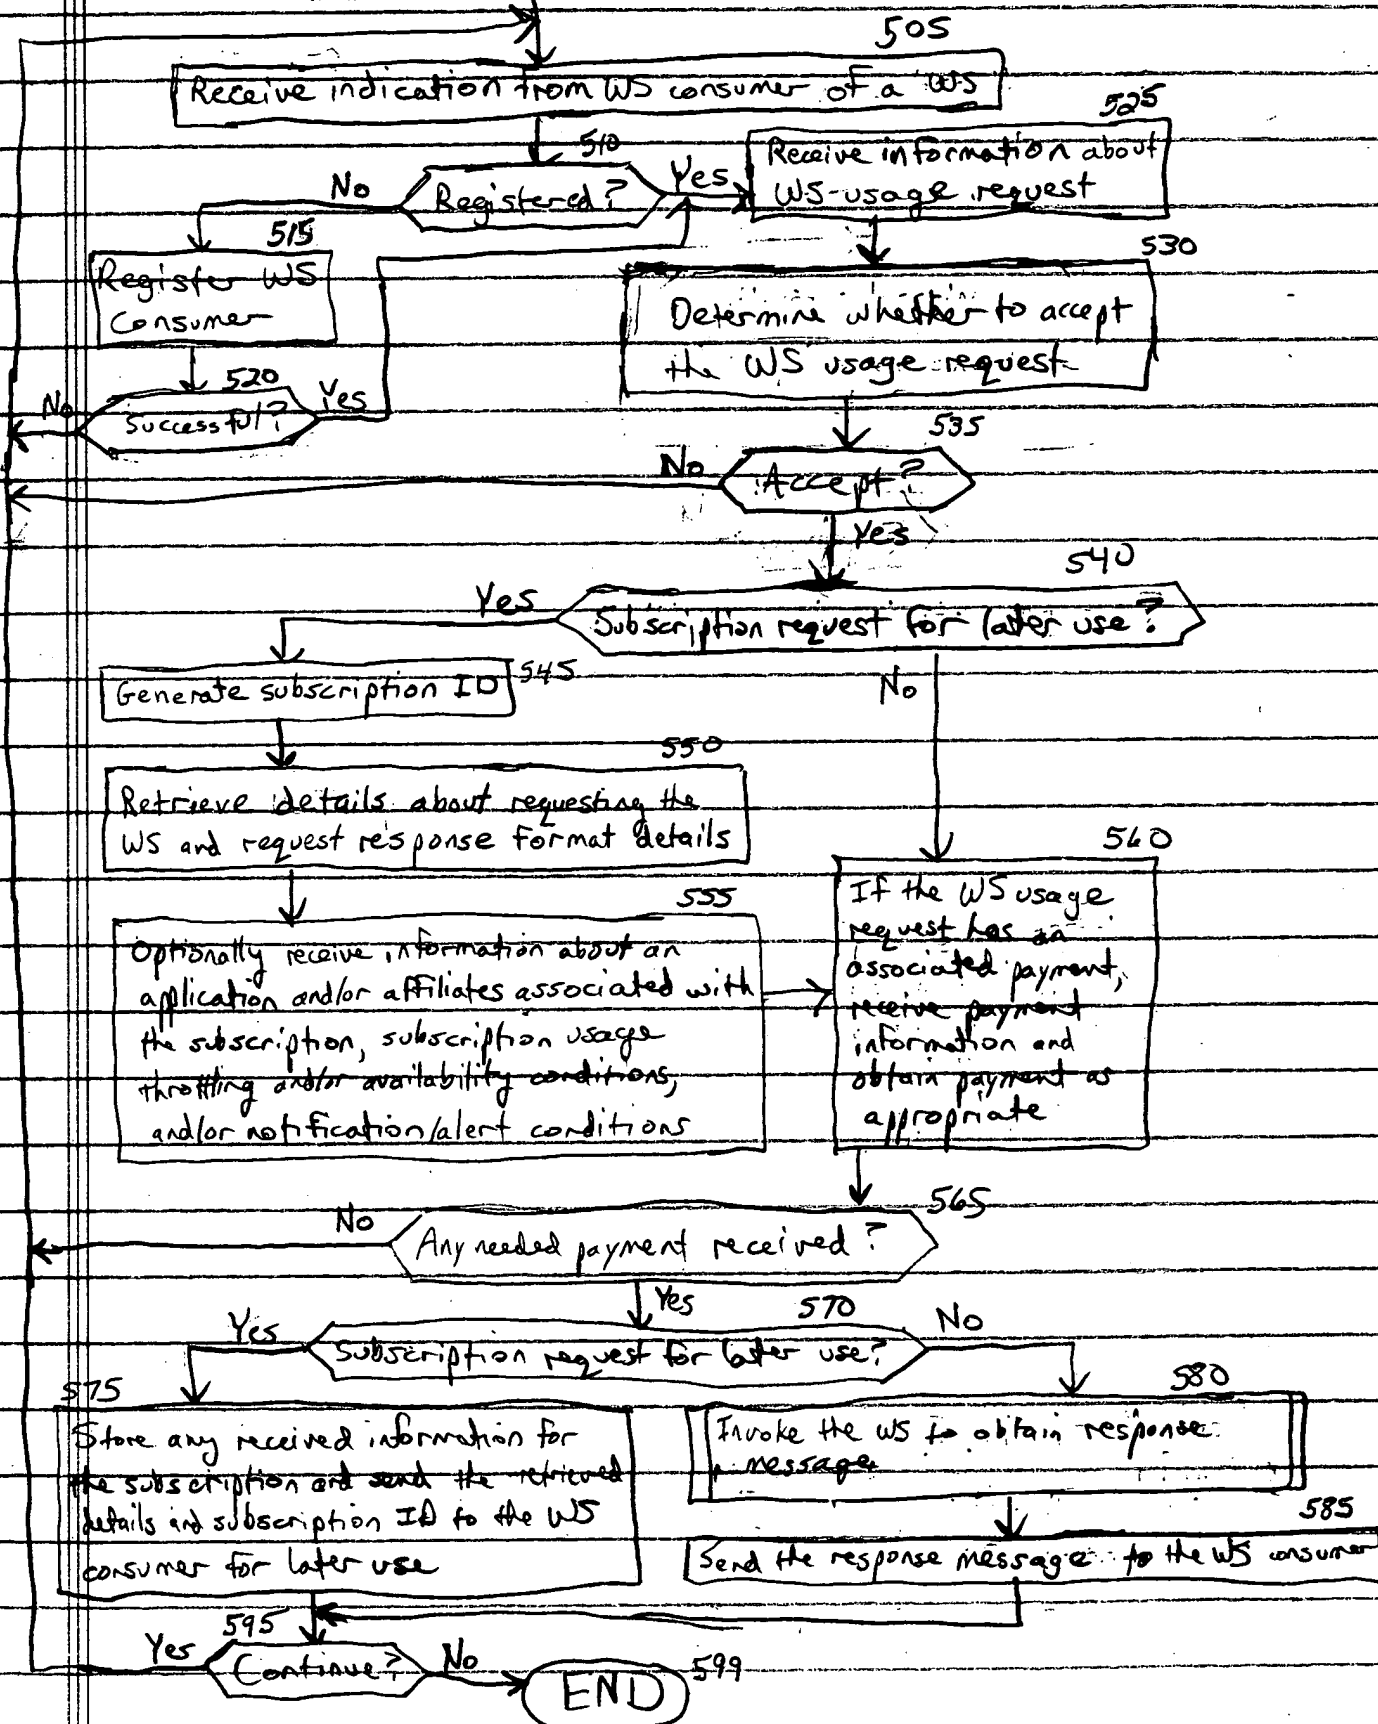 505
Receive indication from WS consumer of a WS
510
Registered?
No
Yes
525
Receive information about
WS usage request
515
Register WS
Consumer
530
Determine whether to accept
the WS usage request
520
Successful?
No
Yes
535
Accept?
No
Yes
540
Subscription request for later use?
Yes
No
545
Generate subscription ID
550
Retrieve details about requesting the
WS and request response format details
555
Optionally receive information about an
application and/or affiliates associated with
the subscription, subscription usage
throttling and/or availability conditions,
and/or notification/alert conditions
560
If the WS usage
request has an
associated payment,
receive payment
information and
obtain payment as
appropriate
565
Any needed payment received?
No
Yes
570
Subscription request for later use?
Yes
No
575
Store any received information for
the subscription and send the retrieved
details and subscription ID to the WS
consumer for later use
580
Invoke the WS to obtain response
message
585
Send the response message to the WS consumer
595
Continue?
Yes
No
END
599